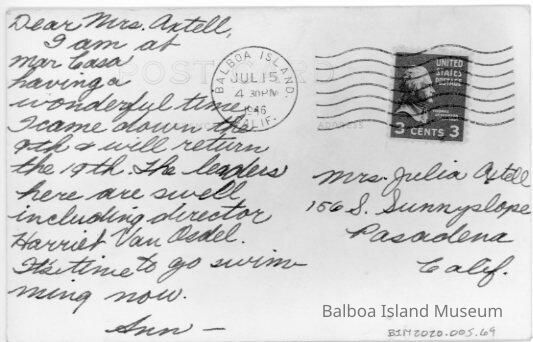 Dear Mrs. Axtell,
I am at
Mar Casa
having a
wonderful time.
I came down the
9th & will return
the 19th. The leaders
here are swell
including director
Harriet Van Osdel.
It's time to go swim-
ming now.
Ann -
POST CARD
BALBOA ISLAND,
JUL 15
4 30 PM
1946
CALIF.
UNITED
STATES
POSTAGE
3 CENTS 3
ADDRESS
Mrs. Julia Axtell
156 S. Sunnyslope
Pasadena
Calif.
Balboa Island Museum
BIM2020.005.69